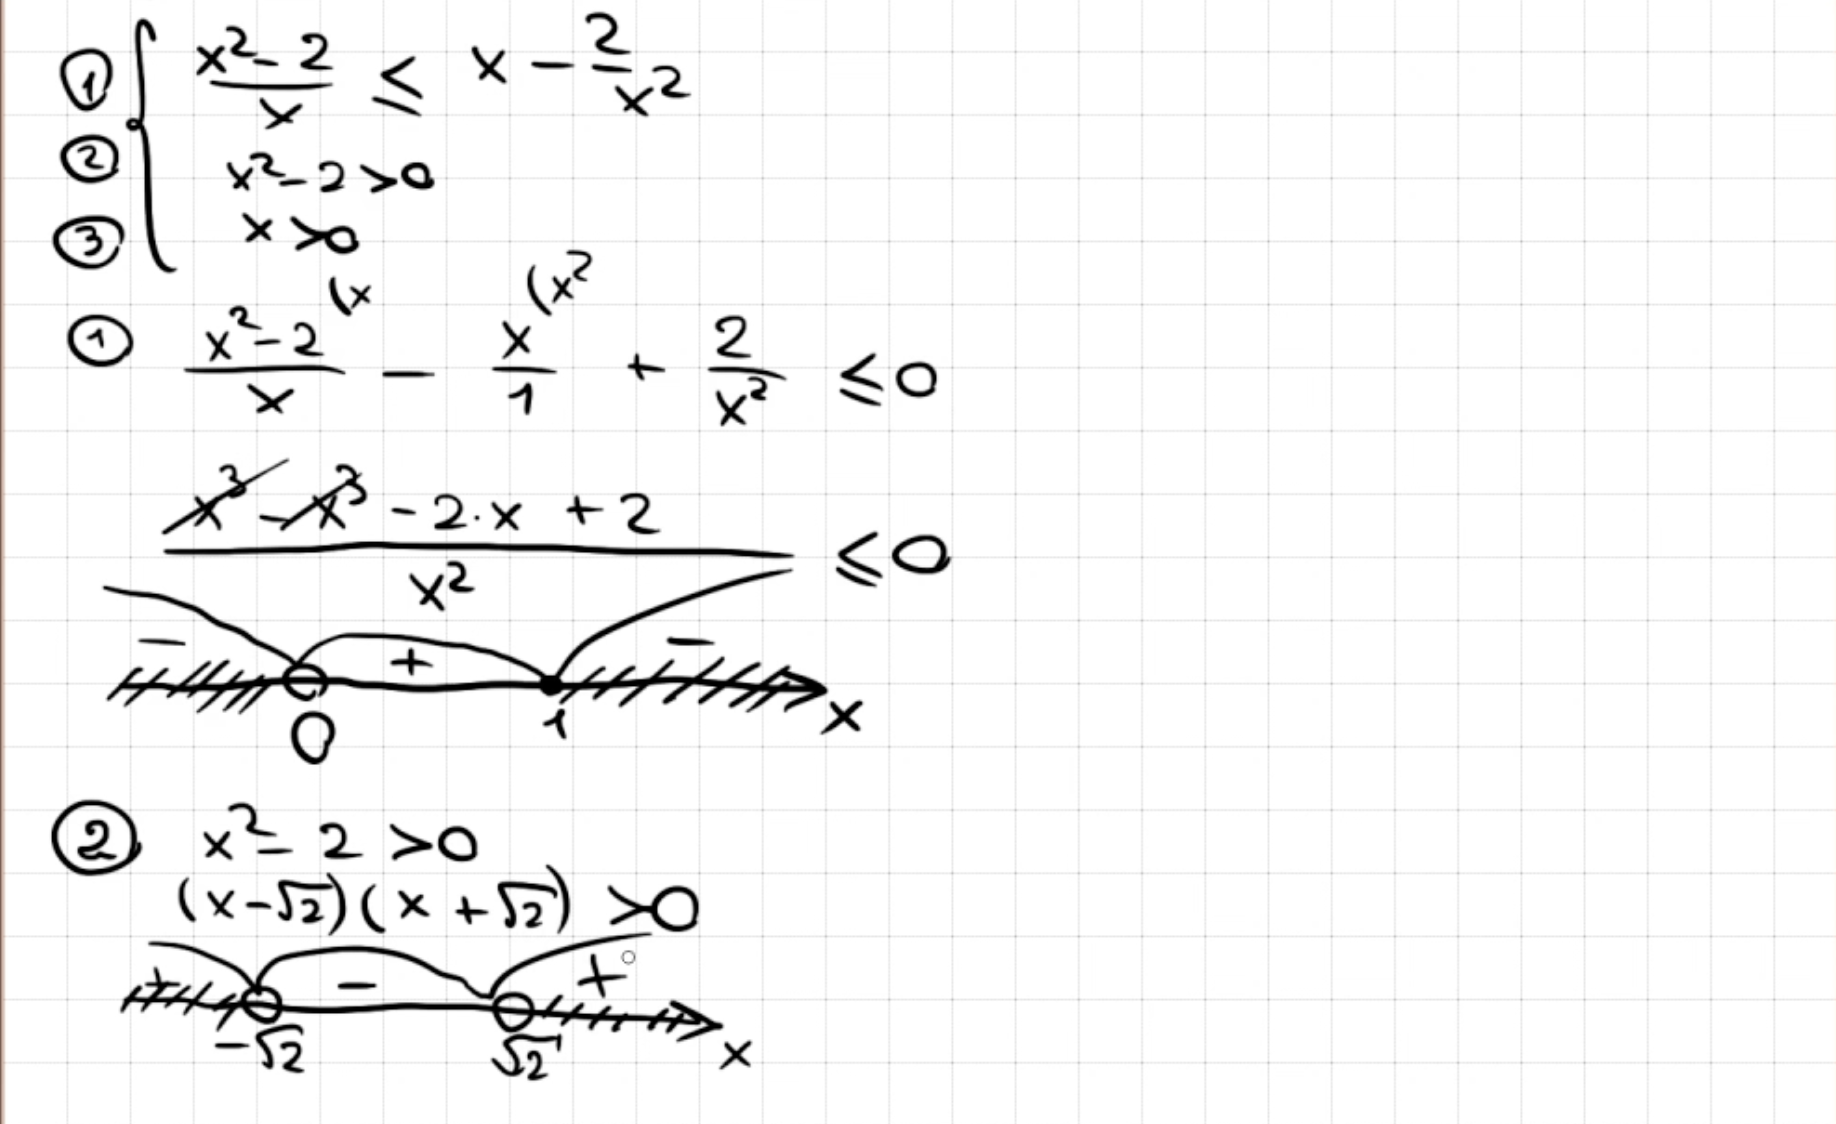 ① { (x² - 2)/x ≤ x - 2/x²
② x² - 2 > 0
③ x > 0
① (x² - 2)/x (x - x/1 (x² + 2/x² ≤ 0
(x³ - x³ - 2·x + 2)/x² ≤ 0
- + -
0 1 x
② x² - 2 > 0
(x - √2)(x + √2) > 0
+ - +
-√2 √2 x